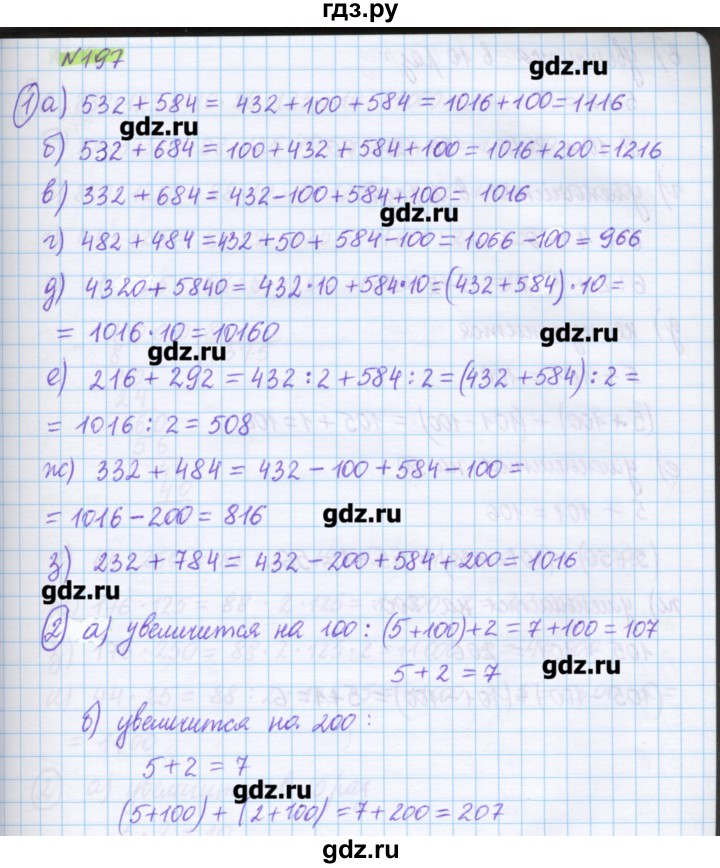 гдз.ру
N197
gdz.ru
1) а) 532 + 584 = 432 + 100 + 584 = 1016 + 100 = 1116
gdz.ru
б) 532 + 684 = 100 + 432 + 584 + 100 = 1016 + 200 = 1216
в) 332 + 684 = 432 - 100 + 584 + 100 = 1016
gdz.ru
г) 482 + 484 = 432 + 50 + 584 - 100 = 1066 - 100 = 966
д) 4320 + 5840 = 432 · 10 + 584 · 10 = (432 + 584) · 10 =
= 1016 · 10 = 10160
gdz.ru
gdz.ru
е) 216 + 292 = 432 : 2 + 584 : 2 = (432 + 584) : 2 =
= 1016 : 2 = 508
ж) 332 + 484 = 432 - 100 + 584 - 100 =
= 1016 - 200 = 816
gdz.ru
з) 232 + 784 = 432 - 200 + 584 + 200 = 1016
gdz.ru
2) а) увеличится на 100 : (5 + 100) + 2 = 7 + 100 = 107
5 + 2 = 7
gdz.ru
б) увеличится на 200 :
5 + 2 = 7
gdz.ru
(5 + 100) + (2 + 100) = 7 + 200 = 207
gdz.ru